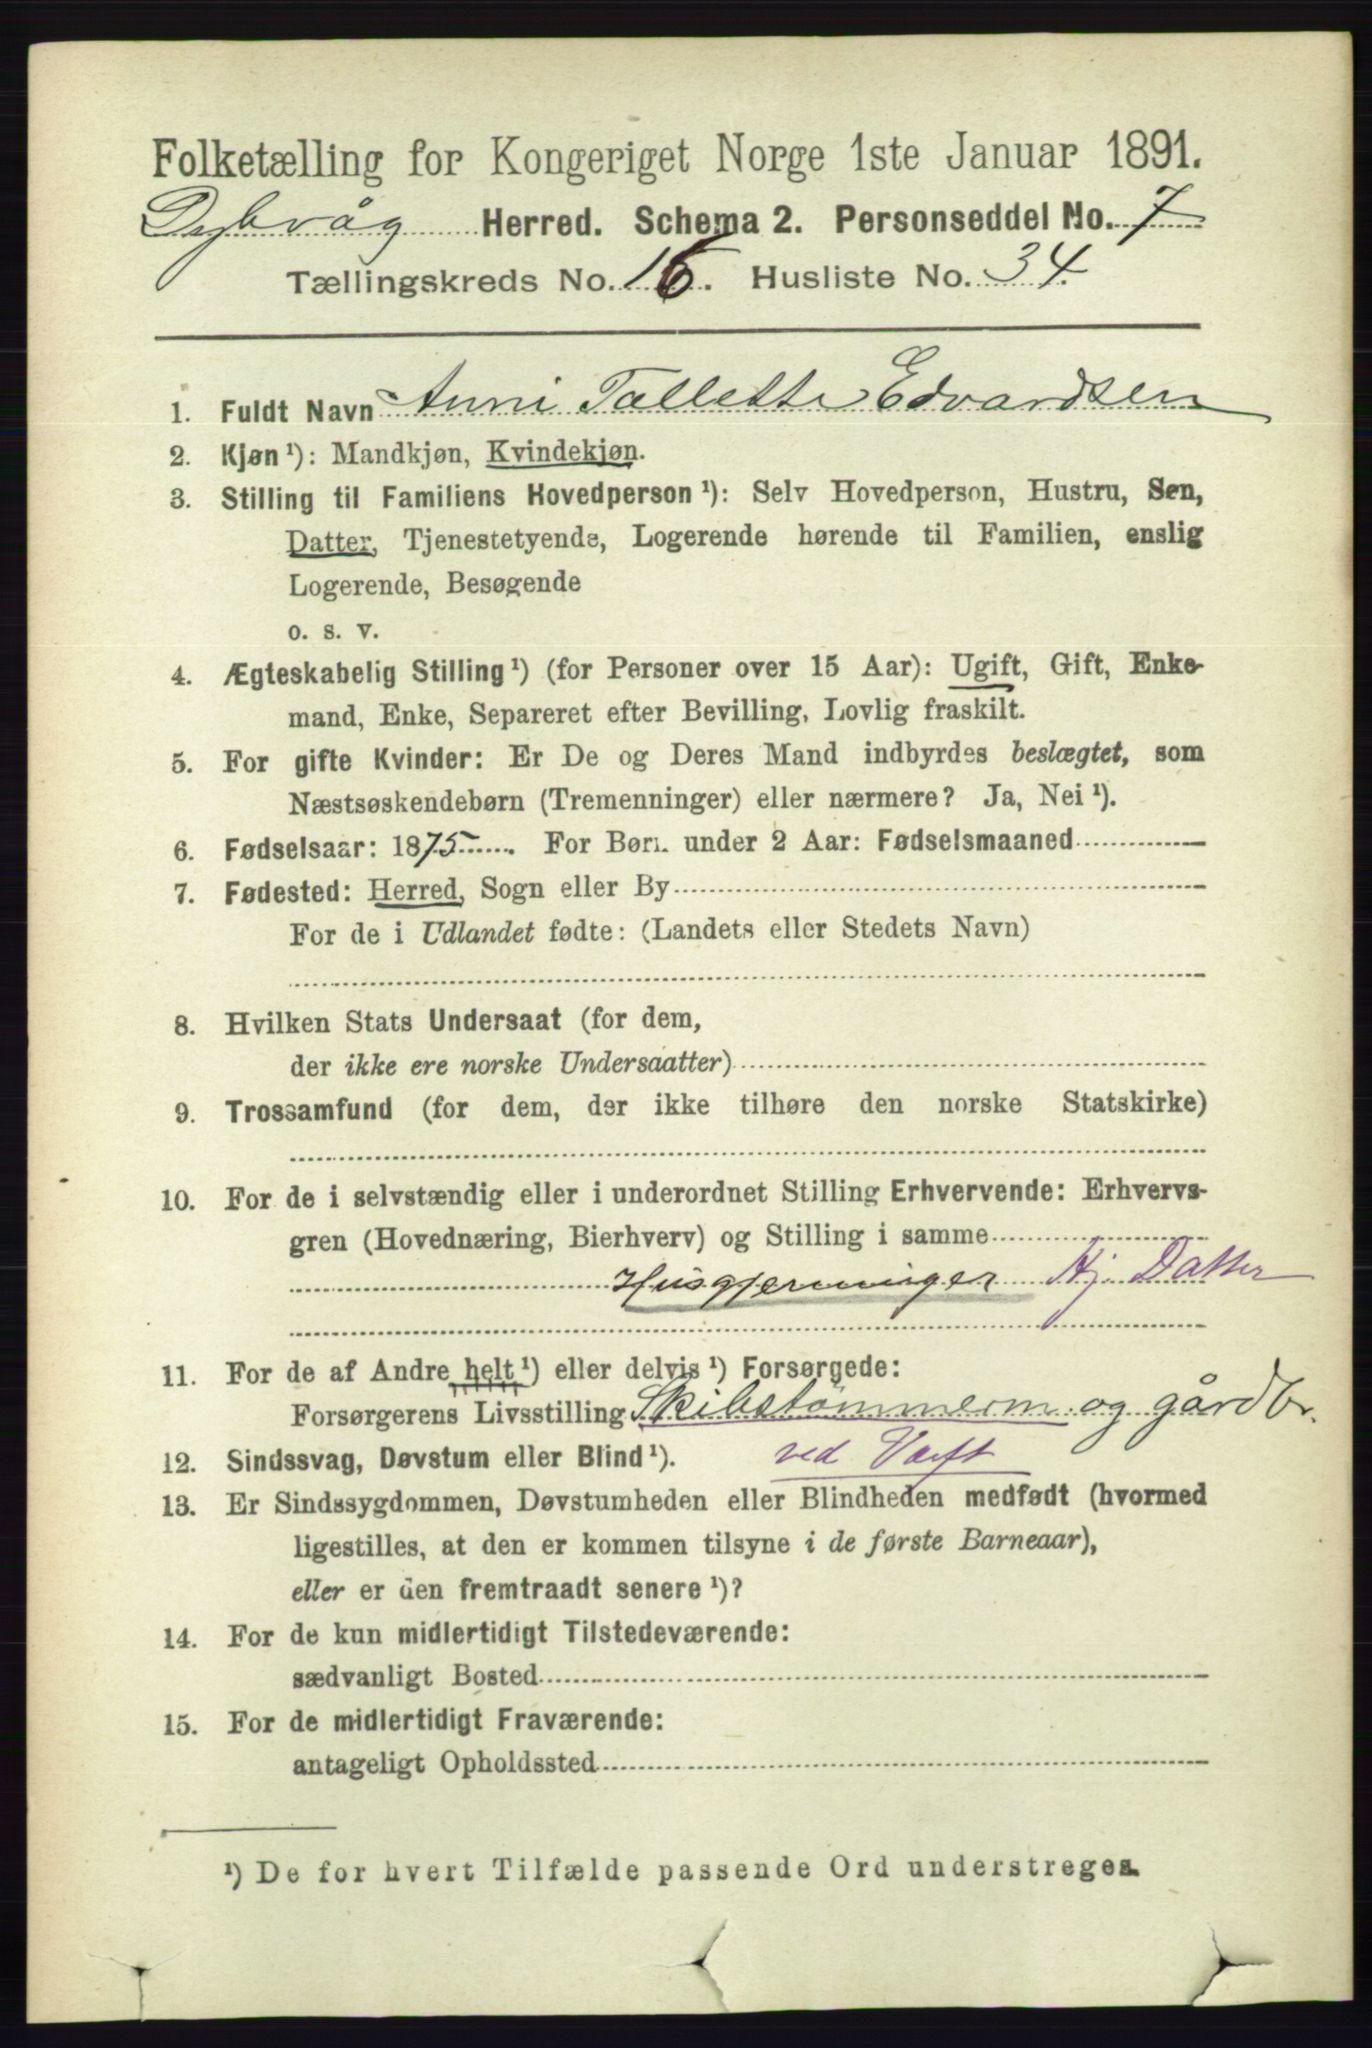 Folketælling for Kongeriget Norge 1ste Januar 1891.
Dybvåg Herred. Schema 2. Personseddel No. 7
Tællingskreds No. 16. Husliste No. 34.
1. Fuldt Navn Anni Tallette Edvardsen
2. Kjøn ¹): Mandkjøn, Kvindekjøn.
3. Stilling til Familiens Hovedperson ¹): Selv Hovedperson, Hustru, Søn,
Datter, Tjenestetyende, Logerende hørende til Familien, enslig
Logerende, Besøgende
o. s. v.
4. Ægteskabelig Stilling ¹) (for Personer over 15 Aar): Ugift, Gift, Enke-
mand, Enke, Separeret efter Bevilling, Lovlig fraskilt.
5. For gifte Kvinder: Er De og Deres Mand indbyrdes beslægtet, som
Næstsøskendebørn (Tremenninger) eller nærmere? Ja, Nei ¹).
6. Fødselsaar: 1875. For Børn under 2 Aar: Fødselsmaaned
7. Fødested: Herred, Sogn eller By
For de i Udlandet fødte: (Landets eller Stedets Navn)
8. Hvilken Stats Undersaat (for dem,
der ikke ere norske Undersaatter)
9. Trossamfund (for dem, der ikke tilhøre den norske Statskirke)
10. For de i selvstændig eller i underordnet Stilling Erhvervende: Erhvervs-
gren (Hovednæring, Bierhverv) og Stilling i samme
Husgjerninger Hj. Datter
11. For de af Andre helt ¹) eller delvis ¹) Forsørgede:
Forsørgerens Livsstilling Skibstømmerm. og gårdbr.
12. Sindssvag, Døvstum eller Blind ¹). ved Værft
13. Er Sindssygdommen, Døvstumheden eller Blindheden medfødt (hvormed
ligestilles, at den er kommen tilsyne i de første Barneaar),
eller er den fremtraadt senere ¹)?
14. For de kun midlertidigt Tilstedeværende:
sædvanligt Bosted
15. For de midlertidigt Fraværende:
antageligt Opholdssted
¹) De for hvert Tilfælde passende Ord understreges.